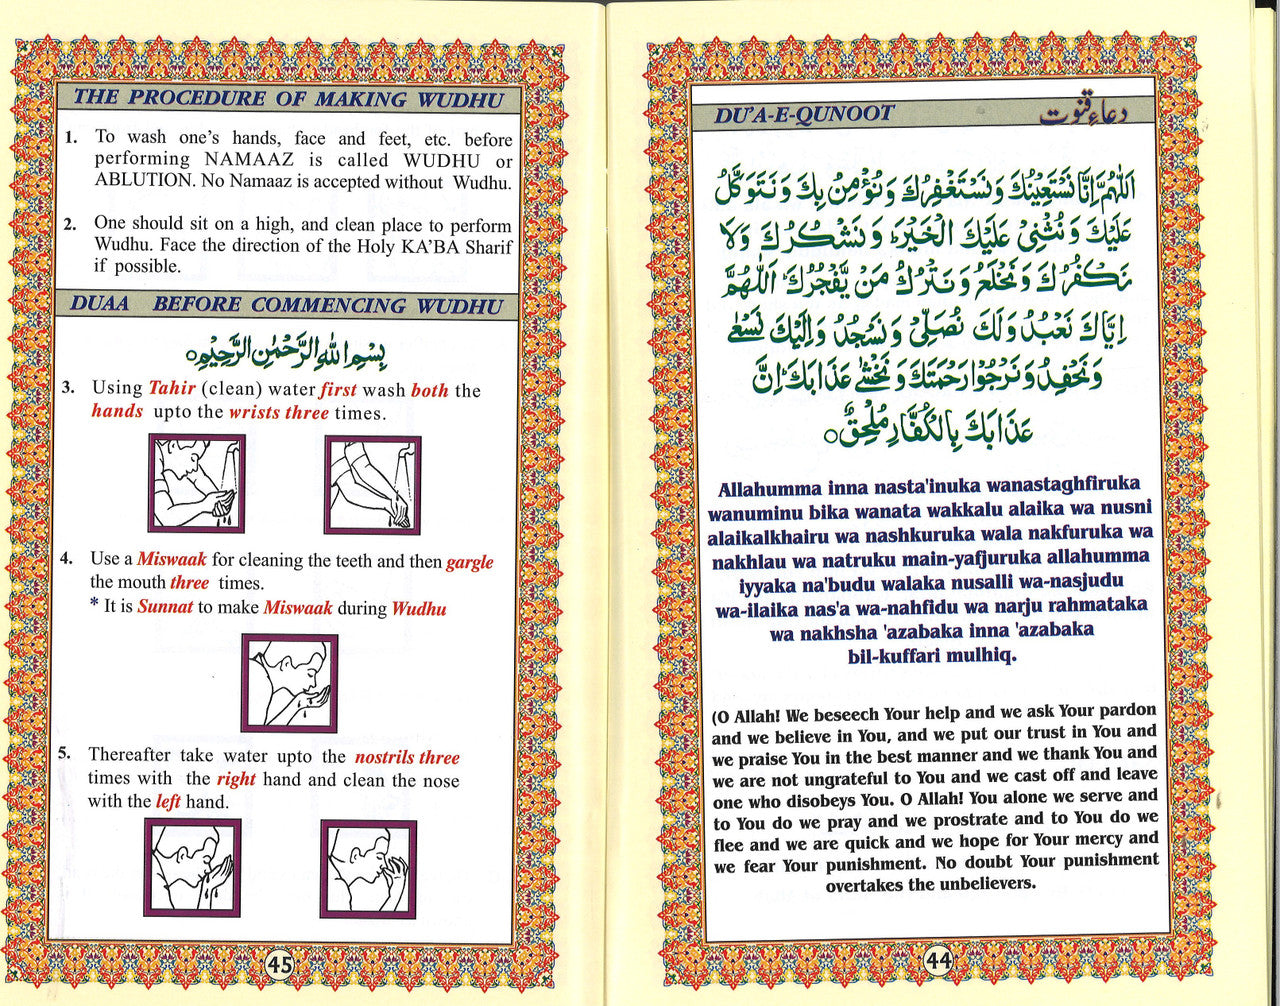 THE PROCEDURE OF MAKING WUDHU
1. To wash one's hands, face and feet, etc. before
performing NAMAAZ is called WUDHU or
ABLUTION. No Namaaz is accepted without Wudhu.
2. One should sit on a high, and clean place to perform
Wudhu. Face the direction of the Holy KA'BA Sharif
if possible.
DUAA BEFORE COMMENCING WUDHU
بِسْمِ اللهِ الرَّحْمٰنِ الرَّحِيْمِ○
3. Using Tahir (clean) water first wash both the
hands upto the wrists three times.
4. Use a Miswaak for cleaning the teeth and then gargle
the mouth three times.
* It is Sunnat to make Miswaak during Wudhu
5. Thereafter take water upto the nostrils three
times with the right hand and clean the nose
with the left hand.
45
DU'A-E-QUNOOT دعاءِ قنوت
اَللّٰهُمَّ اِنَّا نَسْتَعِيْنُكَ وَنَسْتَغْفِرُكَ وَنُؤْمِنُ بِكَ وَنَتَوَكَّلُ
عَلَيْكَ وَنُثْنِىْ عَلَيْكَ الْخَيْرَ وَنَشْكُرُكَ وَلَا
نَكْفُرُكَ وَنَخْلَعُ وَنَتْرُكُ مَنْ يَّفْجُرُكَ اَللّٰهُمَّ
اِيَّاكَ نَعْبُدُ وَلَكَ نُصَلِّىْ وَنَسْجُدُ وَاِلَيْكَ نَسْعٰى
وَنَحْفِدُ وَنَرْجُوْا رَحْمَتَكَ وَنَخْشٰى عَذَابَكَ اِنَّ
عَذَابَكَ بِالْكُفَّارِ مُلْحِقٌ○
Allahumma inna nasta'inuka wanastaghfiruka
wanuminu bika wanata wakkalu alaika wa nusni
alaikalkhairu wa nashkuruka wala nakfuruka wa
nakhlau wa natruku main-yafjuruka allahumma
iyyaka na'budu walaka nusalli wa-nasjudu
wa-ilaika nas'a wa-nahfidu wa narju rahmataka
wa nakhsha 'azabaka inna 'azabaka
bil-kuffari mulhiq.
(O Allah! We beseech Your help and we ask Your pardon
and we believe in You, and we put our trust in You and
we praise You in the best manner and we thank You and
we are not ungrateful to You and we cast off and leave
one who disobeys You. O Allah! You alone we serve and
to You do we pray and we prostrate and to You do we
flee and we are quick and we hope for Your mercy and
we fear Your punishment. No doubt Your punishment
overtakes the unbelievers.
44